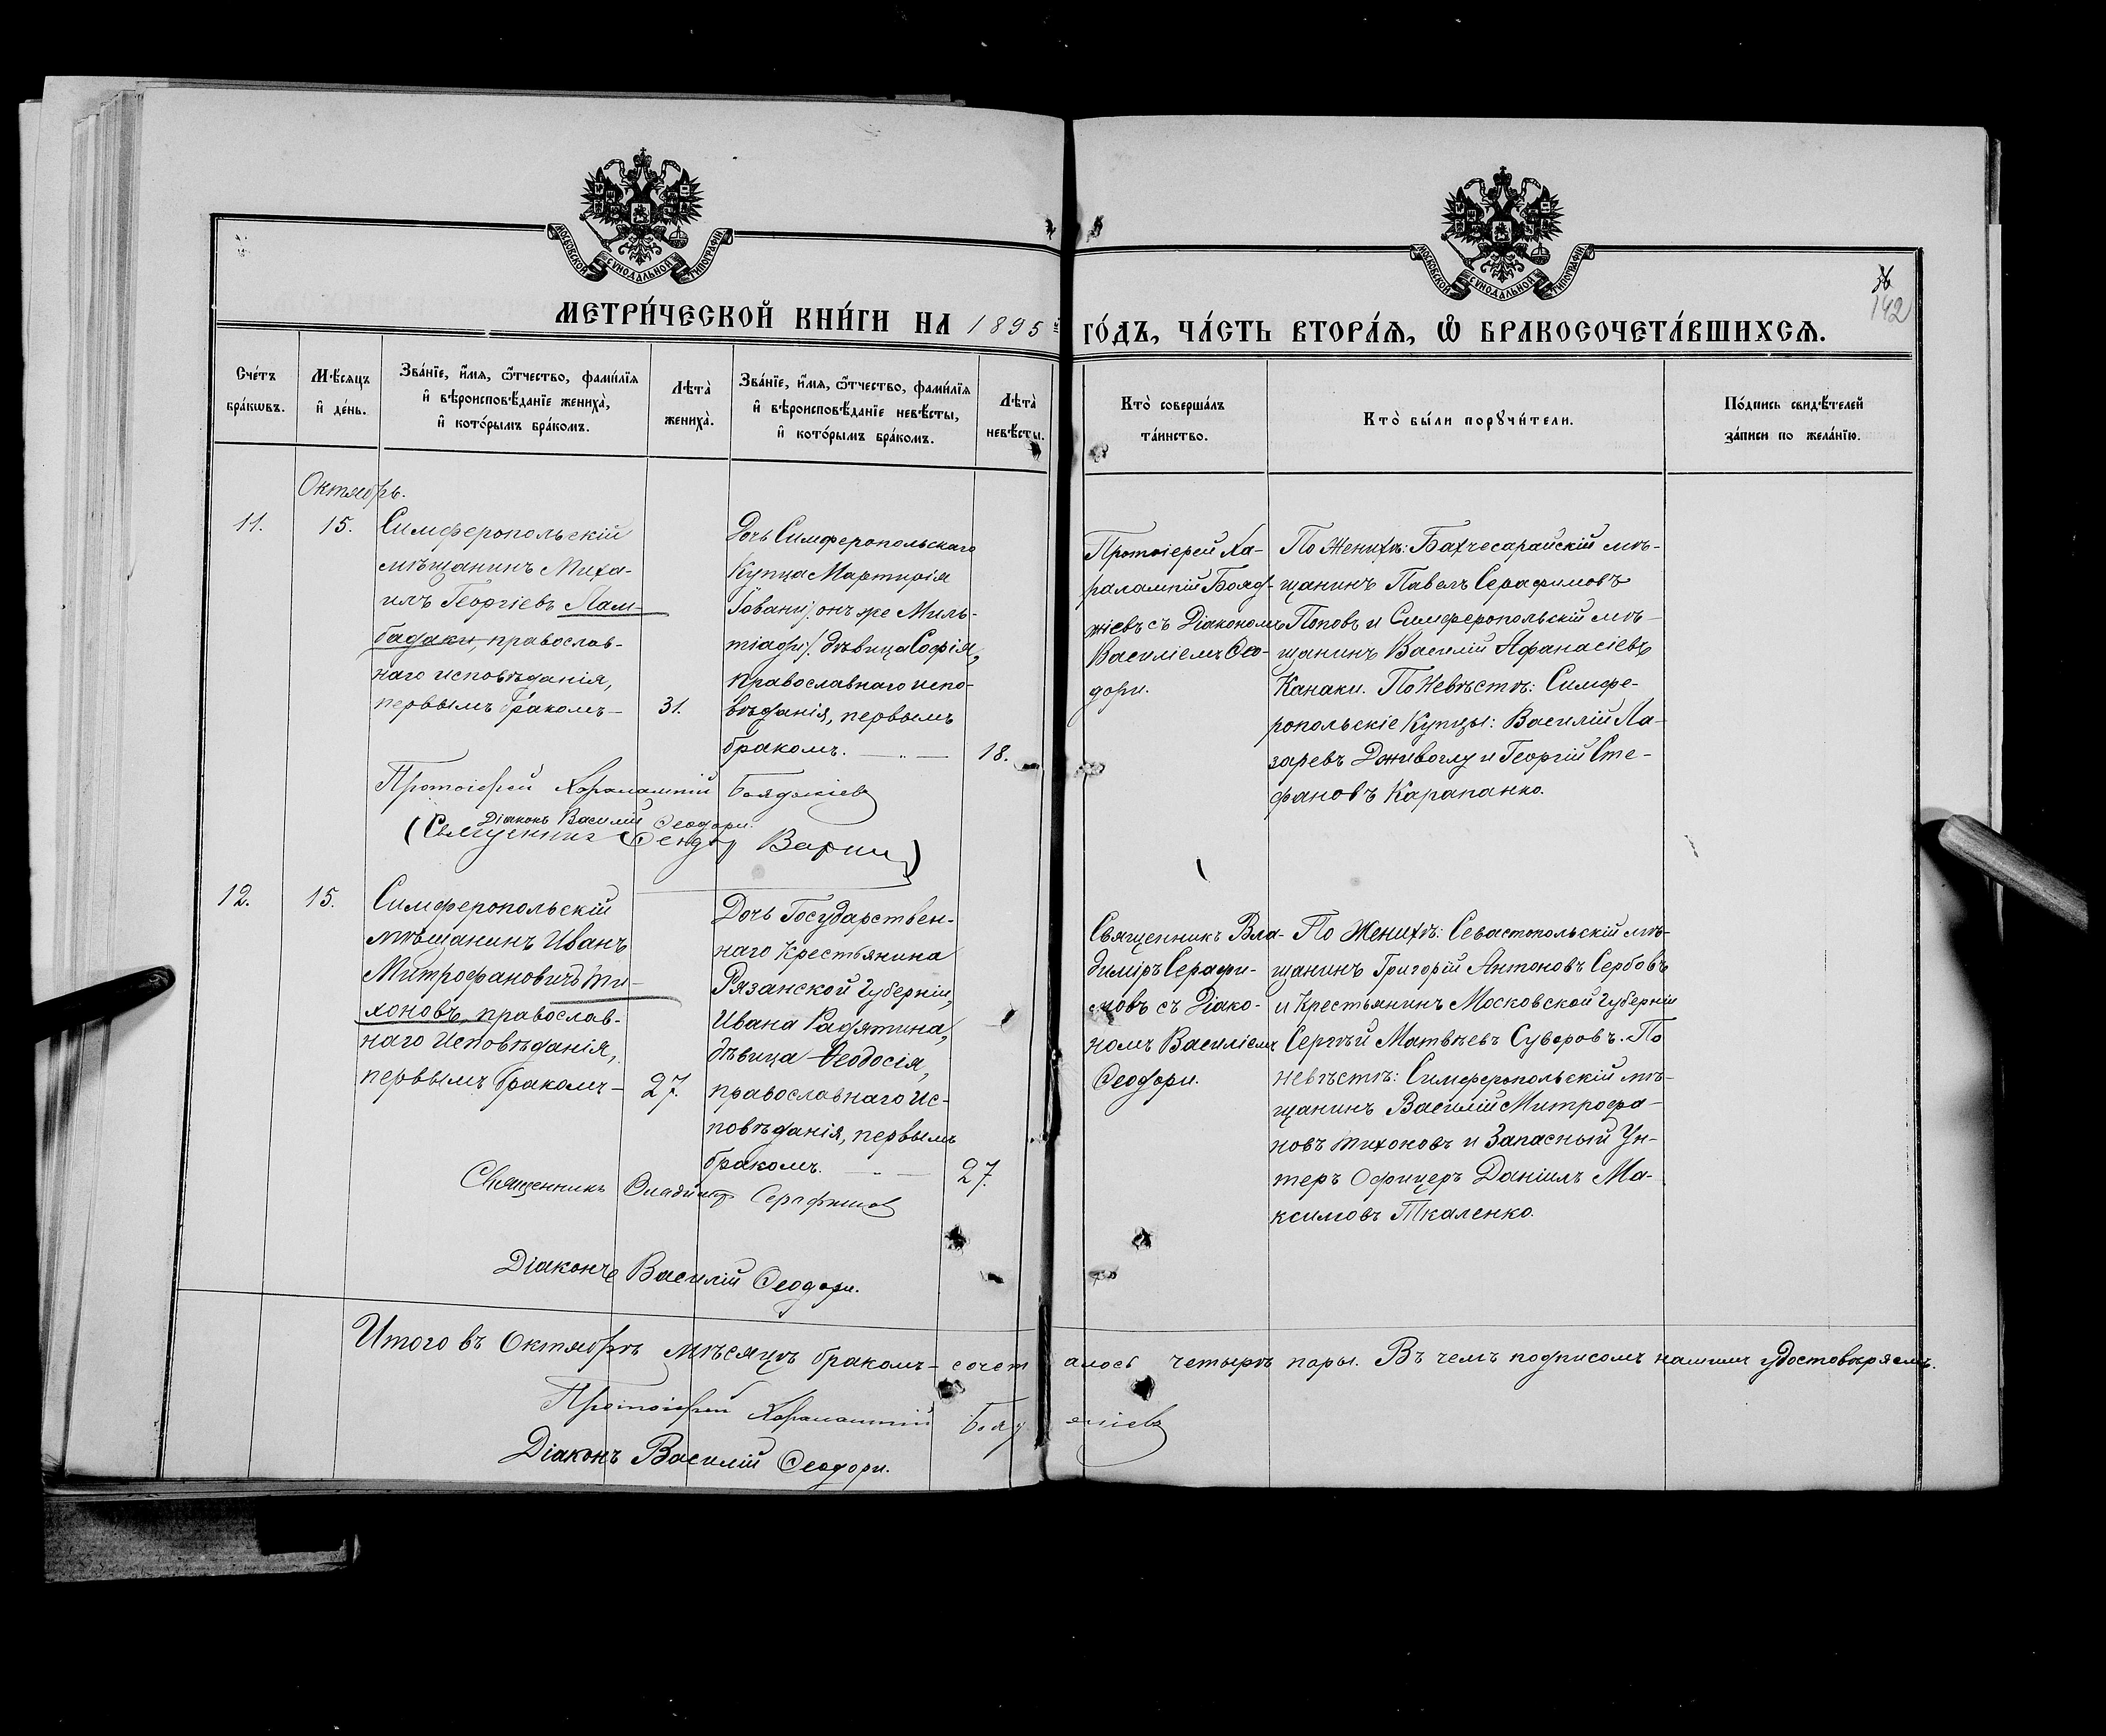 МОСКОВСКОЙ СѴНОДАЛЬНОЙ ТИПОГРАФІИ
МОСКОВСКОЙ СѴНОДАЛЬНОЙ ТИПОГРАФІИ
142
МЕТРИ́ЧЕСКОЙ КНИ́ГИ НА 1895 й ГО́ДЪ, ЧА́СТЬ ВТОРА́Ѧ, Ѡ҆ БРАКОСОЧЕТА́ВШИХСѦ.
Сче́тъ
бра́кѡвъ.
Мѣ́сѧцъ
и҆ де́нь.
Зва́нїе, и҆́мѧ, ѻ҆́тчество, фамѝлїѧ
и҆ вѣроисповѣ́данїе женихà,
и҆ кото́рымъ бра́комъ.
Лѣтà
женихà.
Зва́нїе, и҆́мѧ, ѻ҆́тчество, фамѝлїѧ
и҆ вѣроисповѣ́данїе невѣ́сты,
и҆ кото́рымъ бра́комъ.
Лѣтà
невѣ́сты.
Ктò соверша́лъ
та́инство.
Ктò бы́ли порꙋчи́тели.
По́дпись свидѣ́телей
за́писи по жела́нїю.
Октябрь.
11.
15.
Симферопольскій
мѣщанинъ Миха-
илъ Георгіевъ Лам-
бадаки, православ-
наго исповѣданія,
первымъ бракомъ –
31.
Дочь Симферопольскаго
Купца Мартирія
Іовани /: онъ же Миль-
тіади /: дѣвица Софія,
православнаго испо-
вѣданія, первымъ
бракомъ.
18.
Протоіерей Ха-
ралампій Бояд-
жіевъ съ Діакономъ
Василіемъ Ѳео-
дори.
По Женихѣ: Бахчесарайскій мѣ-
щанинъ Павелъ Серафимовъ
Поповъ и Симферопольскій мѣ-
щанинъ Василій Афанасіевъ
Канаки. По Невѣстѣ: Симфе-
ропольскіе Купцы: Василій Ла-
заревъ Дживоглу и Георгій Сте-
фановъ Карапанко.
Протоіерей Харалампій Бояджіевъ
Діаконъ Василій Ѳеодори.
(Священник
12.
15.
Симферопольскій
мѣщанинъ Иванъ
Митрофановичъ Ти-
хоновъ, православ-
наго Исповѣданія,
первымъ бракомъ –
27.
Дочь Государствен-
наго Крестьянина
Рязанской Губерніи,
Ивана Радятина,
дѣвица Ѳеодосія,
православнаго Ис-
повѣданія, первымъ
бракомъ.
27.
Священникъ Вла-
диміръ Серафи-
мовъ съ Діако-
номъ Василіемъ
Ѳеодори.
По Женихѣ: Севастопольскій мѣ-
щанинъ Григорій Антоновъ Сербовъ
и Крестьянинъ Московской Губерніи
Сергѣй Матвѣевъ Суворовъ. По
невѣстѣ: Симферопольскій мѣ-
щанинъ Василій Митрофа-
новъ Тихоновъ и Запасный Ун-
теръ Офицеръ Даніилъ Ма-
ксимовъ Ткаленко.
Священникъ Владиміръ Серафимовъ
Діаконъ Василій Ѳеодори.
Итого въ Октябрѣ мѣсяцѣ бракомъ сочеталось четырѣ пары. Въ чемъ подписомъ нашимъ удостовѣряемъ.
Протоіерей Харалампій Бояджіевъ
Діаконъ Василій Ѳеодори.